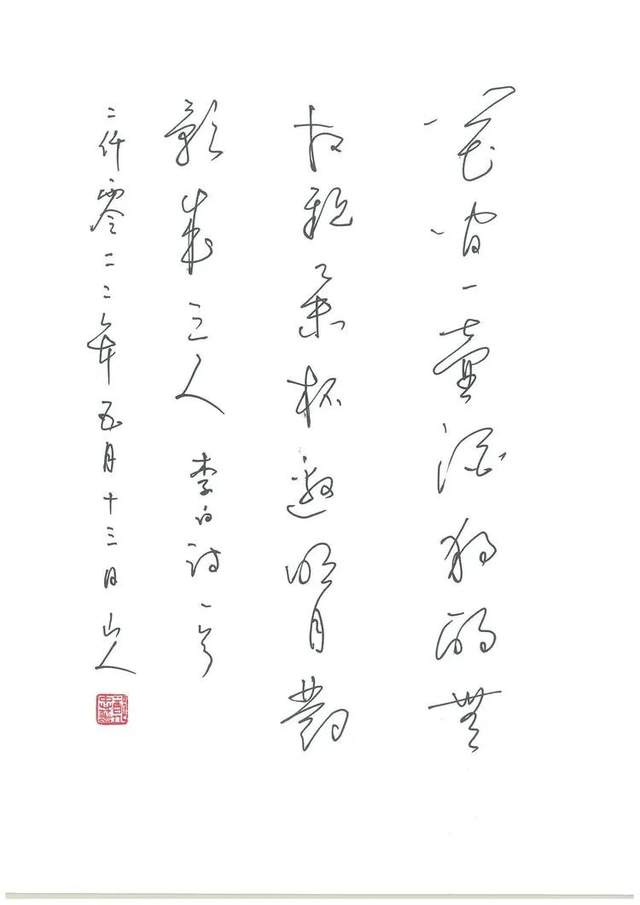 花間一壺酒獨酌無
相親舉杯邀明月對
影成三人 李白詩一首
二仟零二二年五月十三日 山人